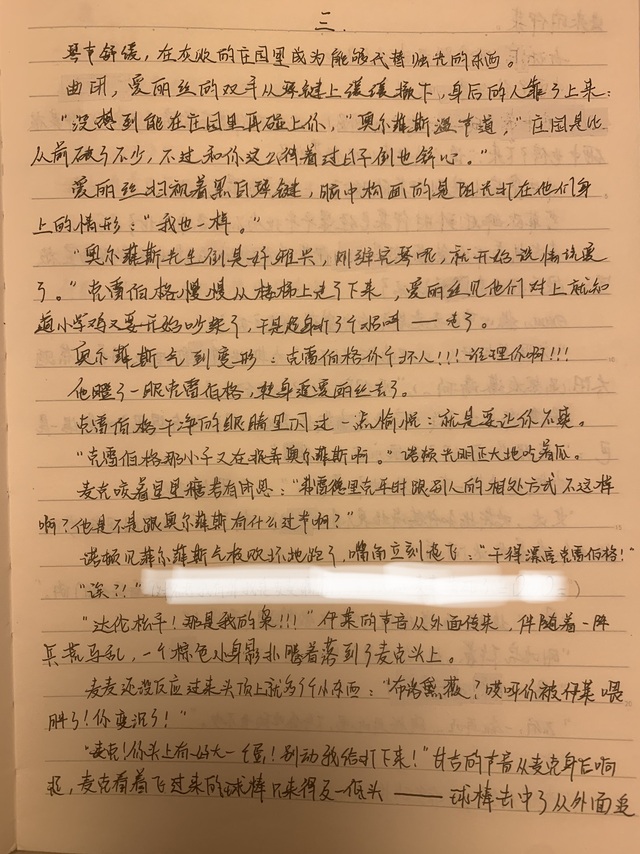 三.
琴声舒缓，在灰败的庄园里成为能够代替烛光的东西。
曲闭，爱丽丝的双手从琴键上缓缓撤下，身后的人靠了上来：
“没想到能在庄园里再碰上你，”奥尔菲斯温声道，“庄园是比
从前破了不少，不过和你这么待着过日子倒也舒心。”
爱丽丝扫视着黑白琴键，脑中构画的是阳光打在他们身
上的情形：“我也一样。”
“奥尔菲斯先生倒是好雅兴，刚弹完琴呢，就开始谈情说爱
了。”克雷伯格慢慢从楼梯上走了下来，爱丽丝见他们对上就知
道小学鸡又要开始吵架了，于是起身打了个招呼——走了。
奥尔菲斯气到变形：克雷伯格你个坏人！！！谁理你啊！！！
他瞪了一眼克雷伯格，转身追爱丽丝去了。
克雷伯格干净的眼睛里闪过一点愉悦：就是要让你不爽。
“克雷伯格那小子又在捉弄奥尔菲斯啊。”诺顿光明正大地吃着瓜。
麦克咬着星星糖若有所思：“弗雷德里克平时跟别人的相处方式不这样
啊？他是不是跟奥尔菲斯有什么过节啊？”
诺顿见奥尔菲斯气极败坏地跑了，嘴角立刻起飞：“干得漂亮克雷伯格！”
“诶？！”
“达伦松手！那是我的枭！！！”伊莱的声音从外面传来，伴随着一阵
兵荒马乱，一个棕色小身影扑腾着落到了麦克头上。
麦麦还没反应过来头顶上就多了个小东西：“布洛黛薇？哎呀你被伊莱喂
胖了！你变沉了！”
“麦克！你头上有好大一个蛋！别动我给打下来！”甘吉的声音从麦克身后响
起，麦克看着飞过来的球棒只来得及一低头——球棒击中了从外面